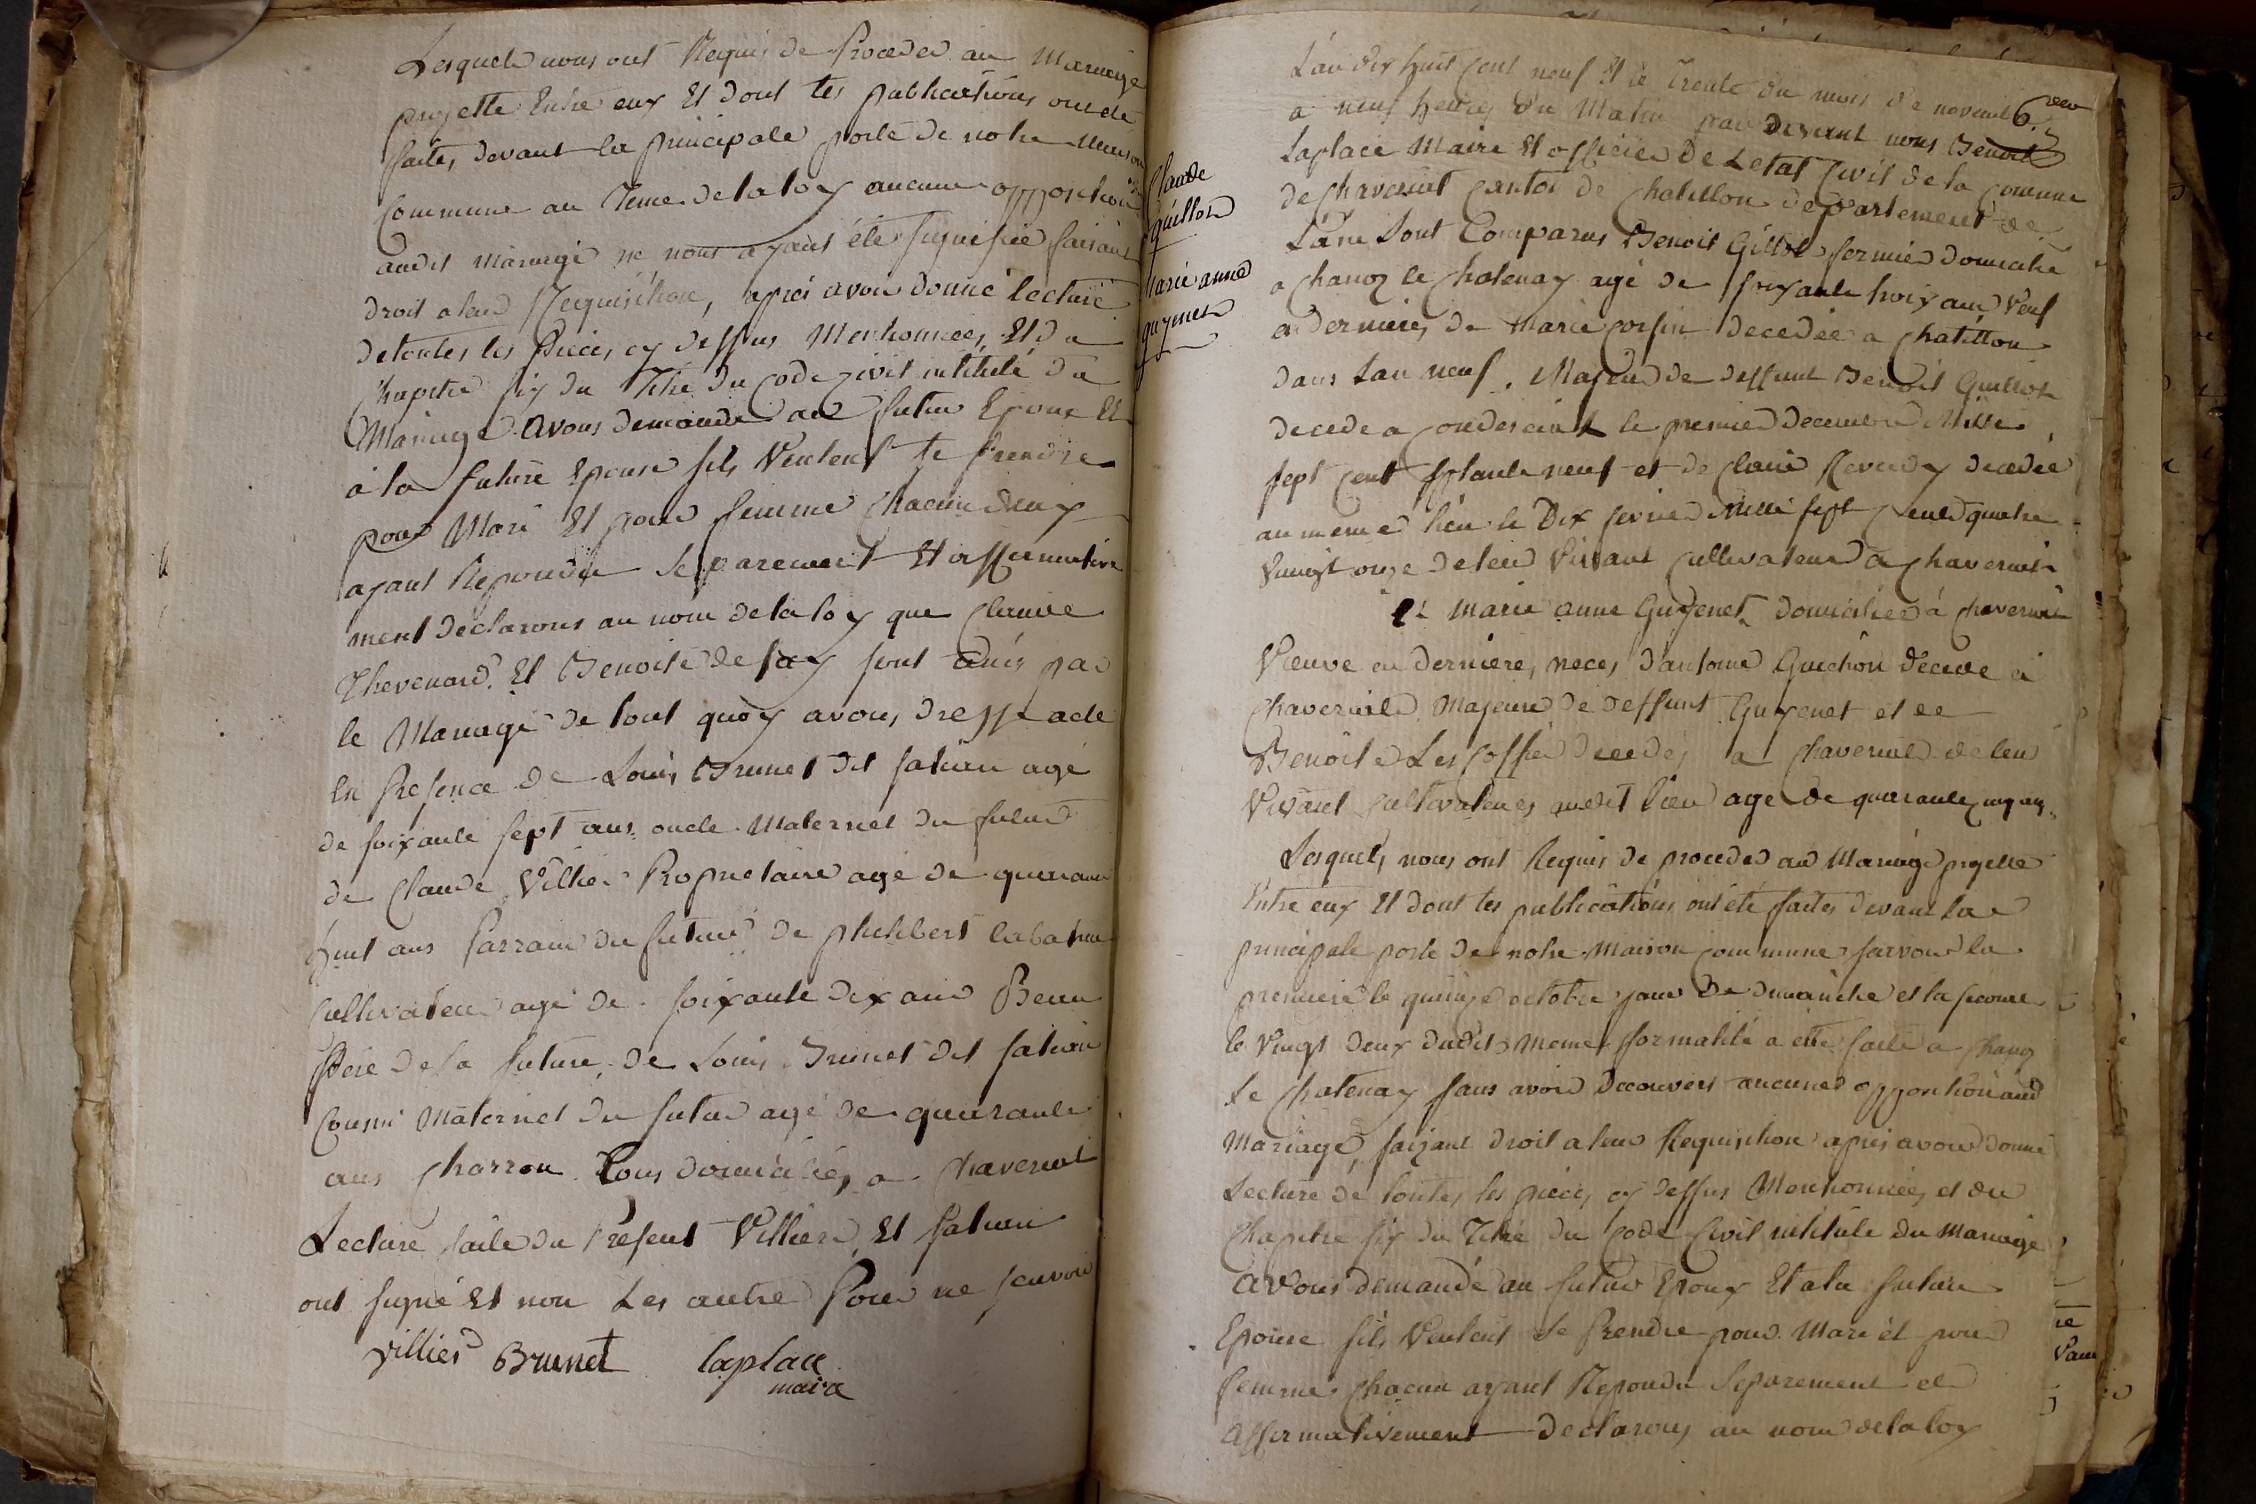 Lesquels nous ont Requis de Proceder au Mariage
projette Entre eux Et dont les publications ont été
faites devant la principale porte de notre Maison
Commune au Terme de la loy aucune opposition
audit Mariage ne nous ayant été signifiée faisant
droit a leur Requisition, après avoir donné lecture
de toutes les Pieces cy dessus Mentionnées, Et du
Chapitre six du Titre du Code Civil intitulé du
Mariage avons demandé au futur Epoux Et
à la future Epouse sils Veulent se Prendre
pour Mari Et pour femme Chacun deux
ayant Repondu Separement Et affirmative
ment declarons au nom de la loy que Claude
Thevenard Et Benoite de fay sont unis par
le Mariage de tout quoy avons dressé acte
En Presence de Louis Brunet dit fatian agé
de soixante sept ans oncle Maternel du futur
de Claude Villier Proprietaire agé de quarante
huit ans Parrain du futur de philibert
Cultivateur agé de soixante dix ans Beau
Pere de la future de Louis Brunet dit fatian
Cousin Maternel du futur agé de quarante
ans Charron Tous domiciliés a Chaveriat
Lecture faite du Present Villier Et fatian
ont signé Et non Les autre Pour ne scavoir
Villier Brunet laplace
maire
Claude
guillot
Marie anne
guyenet
L'an dix huit cent neuf Et le Trente du mois de novembre
a neuf heures du Matin par devant nous Benoit
Laplace Maire Et officier De Letat Civil de la Commune
de Chaveriat Canton de Chatillon departement de
Lain Sont Comparus Benoit Guillot fermier domicilié
a Chanoz le Chatenay agé de soixante trois ans Veuf
en dernieres de Marie decedée a Chatillon
dans Lan neuf. Majeur de deffunt Benoit Guillot
decedé a Condesciat le premier decembre Mille
sept cent septante neuf et de Claire decedée
au meme lieu le Dix fevrier Mille sept Cent quatre
Vingt onze de leur Vivant Cultivateurs a Chaveriat
Et Marie anne Guyenet domiciliée à Chaveriat
Veuve en derniere noces d'antoine Guichon decedé à
Chaveriat Majeure de deffunt Guyenet et de
Benoite decedés a Chaveriat de leur
Vivant Cultivateurs audit lieu agé de quarante cinq ans
Lesquels nous ont Requis de proceder au Mariage projetté
Entre eux Et dont les publications ont été faites devant la
principale porte de notre Maison commune sarvoir la
premiere le quinze octobre jour De dimanche et la seconde
le Vingt deux dudit Meme formalité a été faite a Chanoz
Le Chatenay sans avoir Decouvert aucune opposition audit
Mariage, faisant droit a leur Requisition apres avoir donné
Lecture de toutes les pieces cy dessus Mentionnées et du
Chapitre six du Titre du Code Civil intitulé du Mariage
avons demandé au futur Epoux Et a la future
Epouse sils Veulent se Prendre pour Mari et pour
femme Chacun ayant Repondu Separement et
affirmativement declarons au nom de la loy